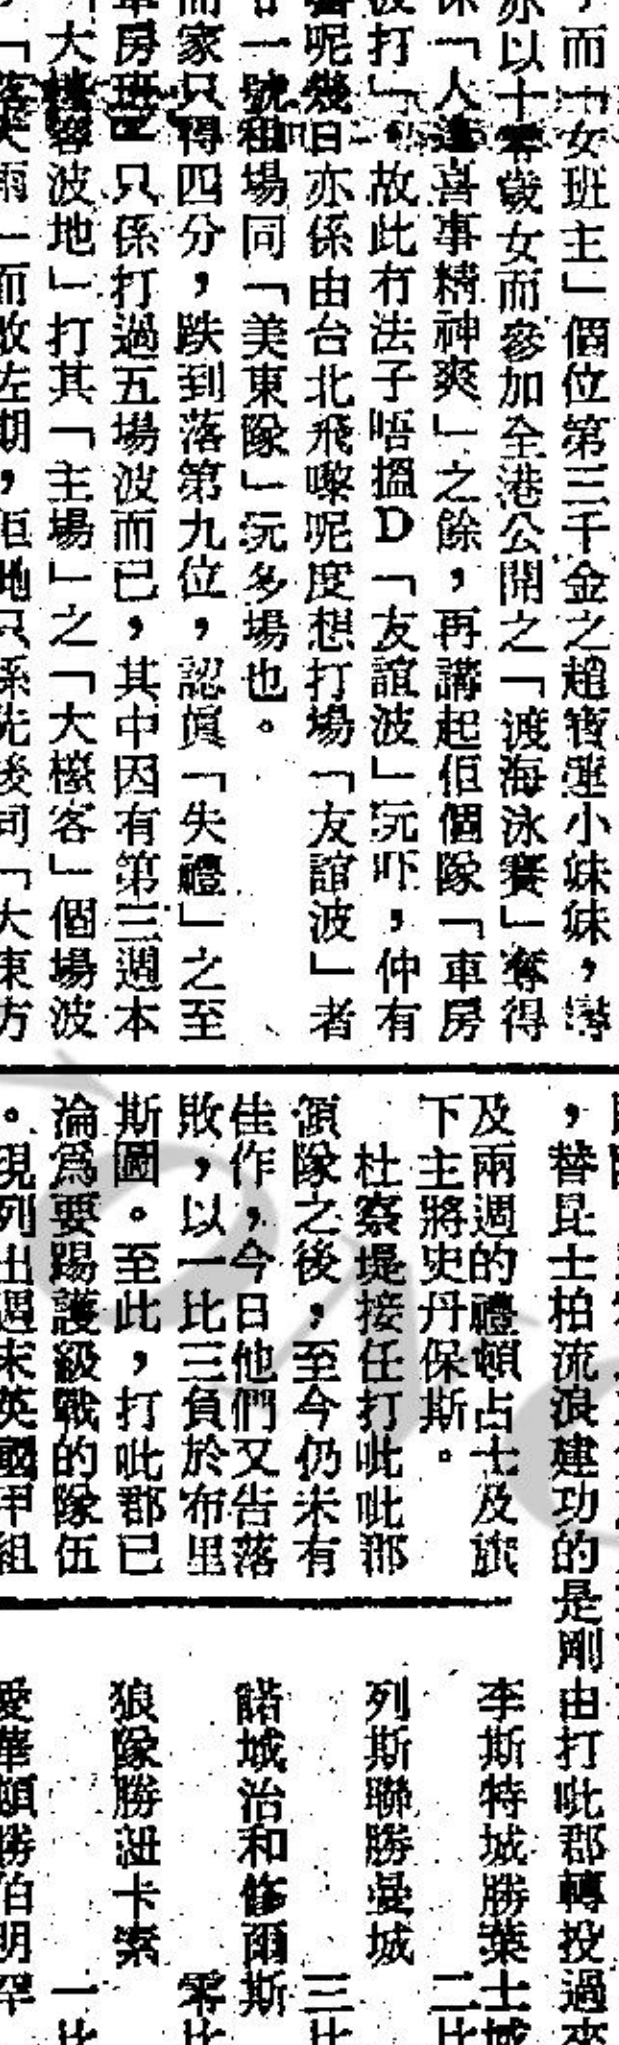 而「女班主」個位第三千金之趙
小妹妹，
亦以十零歲女而參加全港公開之「渡海泳賽」奪得
「人逢喜事精神爽」之餘，再講起佢個隊「車房
波打」。故此冇法子唔搵D「友誼波」玩吓，仲有
呢幾日亦係由台北飛嚟呢度想打場「友誼波」者
一號租場同「美東隊」玩多場也。
而家只得四分，跌到落第九位，認眞「失禮」之至
車房班已只係打過五場波而已，其中因有第三週本
「大檯客波地」打其「主場」之「大檯客」個場波
「落大雨」而改左期，佢哋只係先後同「大東方
，替昆士柏流浪建功的是剛由打吡郡轉投過來
及兩週的禮頓占士及旗
下主將史丹保斯。
杜察堤接任打吡郡
領隊之後，至今仍未有
佳作，今日他們又告落
敗，以一比三負於布里
斯圖。至此，打吡郡已
淪爲要踢護級戰的隊伍
。現列出週末英國甲組
李斯特城勝葉士域
二比
列斯聯勝曼城
三比
諾城治和修咸斯
零比
狼隊勝紐卡素
一比
愛華頓勝伯明罕